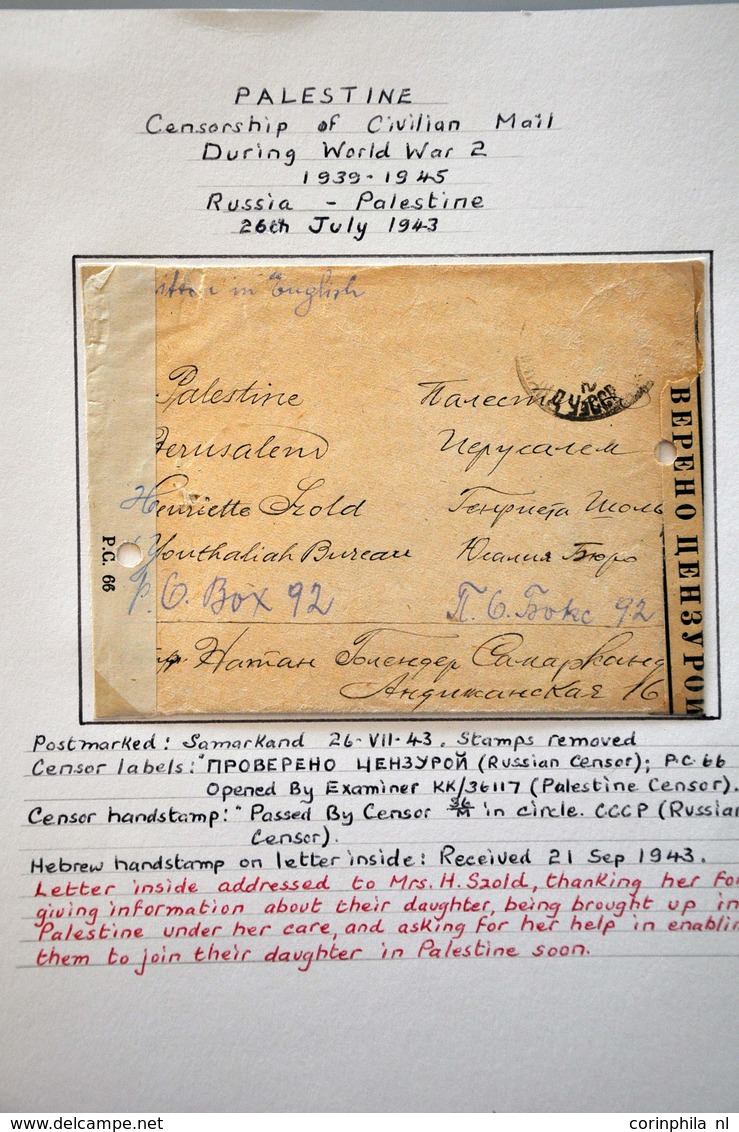 PALESTINE
Censorship of Civilian Mail
During World War 2
1939-1945
Russia - Palestine
26th July 1943
in English
Palestine
Палест
УзССР
Jerusalem
Иерусалем
Henriette Szold
Генриета Шоль
Youthaliah Bureau
Юалия Бюро
P.O. Box 92
П.О. Бокс 92
Натан Блендер Самарканд
Андижанская 16
P.C. 66
ВЕРЕНО ЦЕНЗУРОЙ
Postmarked: Samarkand 26-VII-43. Stamps removed
Censor labels: "ПРОВЕРЕНО ЦЕНЗУРОЙ (Russian Censor); P.C. 66
Opened By Examiner KK/36117 (Palestine Censor).
Censor handstamp: "Passed By Censor 36/M in circle. CCCP (Russian
Censor).
Hebrew handstamp on letter inside: Received 21 Sep 1943.
Letter inside addressed to Mrs. H. Szold, thanking her for
giving information about their daughter, being brought up in
Palestine under her care, and asking for her help in enablin
them to join their daughter in Palestine soon.
corinphila nl